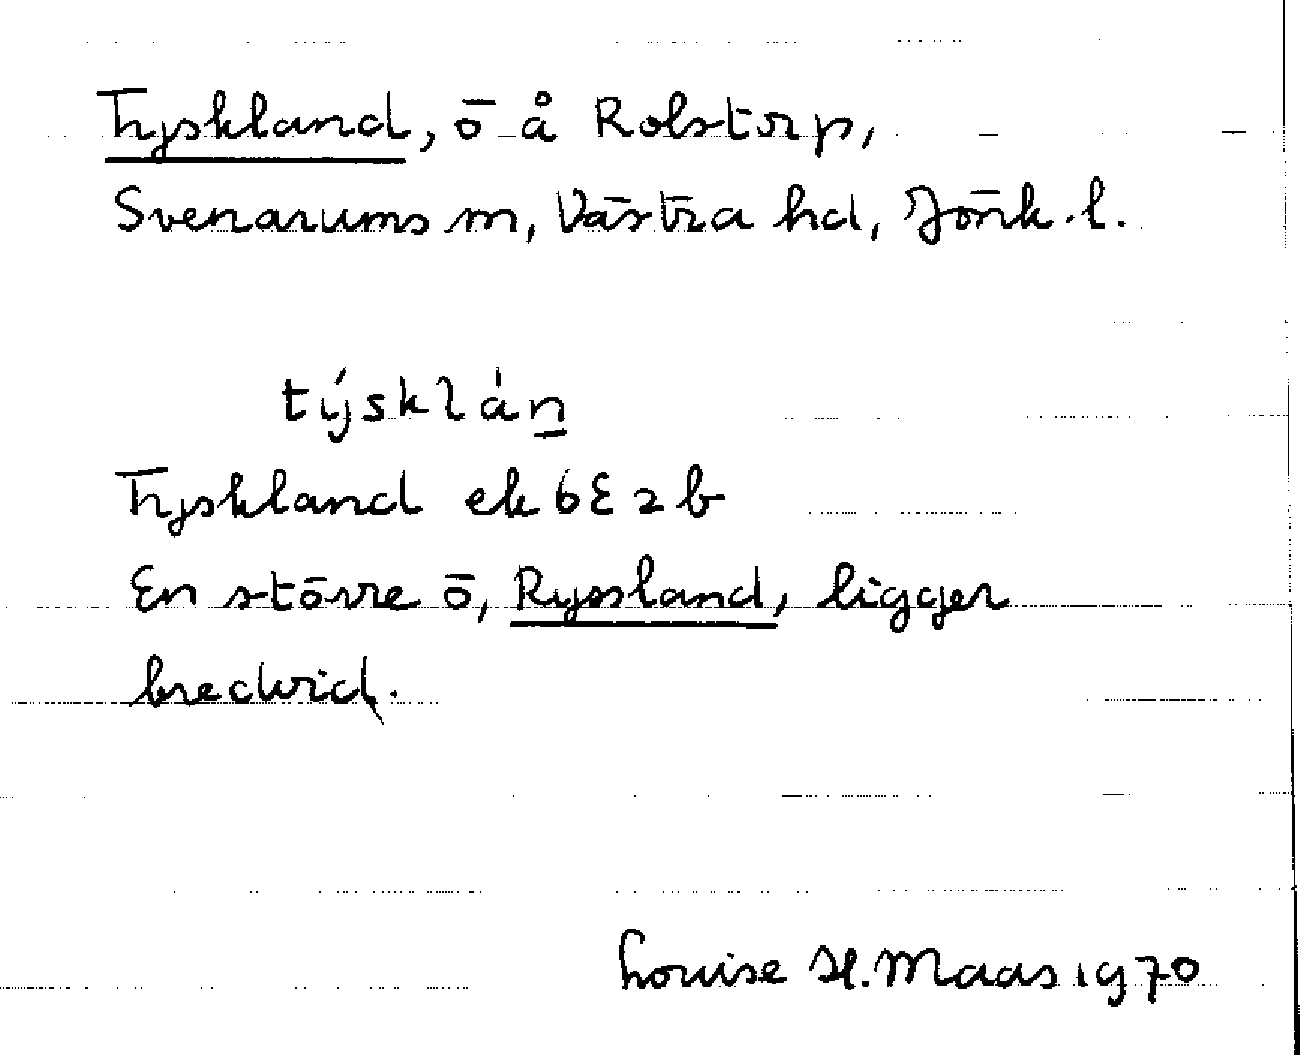 Tyskland, ö å Rolstorp,
Svenarums sn, Västra hd, Jönk. l.
týsklán̲
Tyskland ek 6E2b
En större ö, Ryssland, ligger
bredvid.
Louise H. Maas 1970